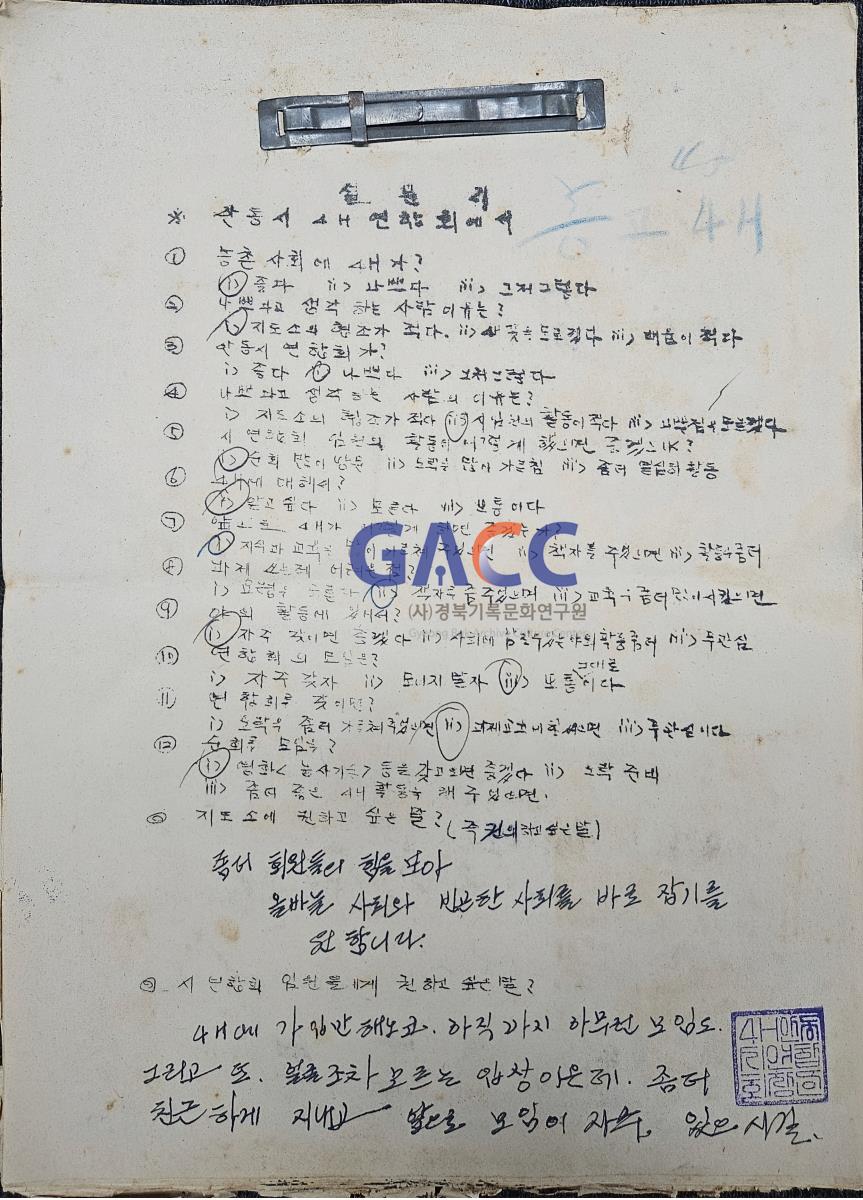 설문지
※ 안동시 4H 연합회에서
농고 4H
① 농촌 사회에 4H가?
i) 좋다 ii) 나쁘다 iii) 그저그렇다
② 나쁘다고 생각 하는 사람 이유는?
i) 지도소의 협조가 적다. ii) iii) 배움이 적다
③ 안동시 연합회가?
i) 좋다 ii) 나쁘다 iii)
④ 나쁘다고 생각 하는 사람의 이유는?
i) 지도소의 협조가 적다 ii) 시임원의 활동이 적다 iii)
⑤ 시 연합회 임원의 활동이 어떻게 했으면 좋겠는가?
i) 순회 많이 방문 ii) 오락을 많이 가르침 iii) 좀더 열심히 활동
⑥ 4H에 대해서?
i) 알고싶다 ii) 모른다 iii) 보통이다
⑦ 4H가 하면 좋겠는가?
i) 지식과 ii) 책자를 주었으면 iii) 활동을 좀더
⑧ 과제 쓰는데 어려운 점?
i) 모른다 ii) 책자를 좀 주었으면 iii) 교육을 좀더 많이 시켰으면
⑨ 야외 활동에 있어서?
i) 자주 갖으면 좋겠다 ii) 사회에 야외활동 좀더 iii) 무관심
⑩ 연합회의 모임은?
i) 자주 갖자 ii) 모이지 말자 iii) 보통 그대로이다
11 연합회를 갖이면?
i) 오락을 좀더 가르쳐 주었으면 ii) 했으면 iii) 무관심이다
⑫ 순회를 모임을?
i) 영화<농사기술> 등을 갖고오면 좋겠다 ii) 오락 준비
iii) 좀더 좋은 4H 활동을 해 주었으면.
◎ 지도소에 권하고 싶은 말? (즉 건의하고 싶은 말)
좀더 회원들의 힘을 모아
올바늘 사회와 빈곤한 사회를 바로 잡기를
원합니다.
◎ 시 연합회 임원들에게 권하고 싶은 말?
4H에 가입만 해노코. 아직까지 아무런 모임도.
그리고 또. 얼굴조차 모르는 입장이온데. 좀더
친근하게 지내고 앞으로 모임이 자주. 있으시길.
GACC
(사)경북기록문화연구원